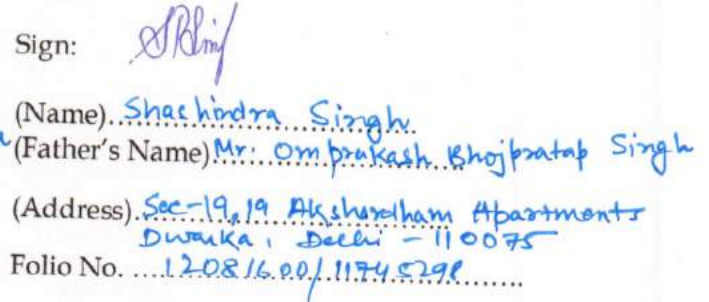 Sign:
(Name). Shachindra Singh
(Father's Name) Mr. Omprakash Bhojpratap Singh
(Address). Sec-19, 19 Akshardham Apartments
Dwarka, Delhi - 110075
Folio No. ....12081600/11745298